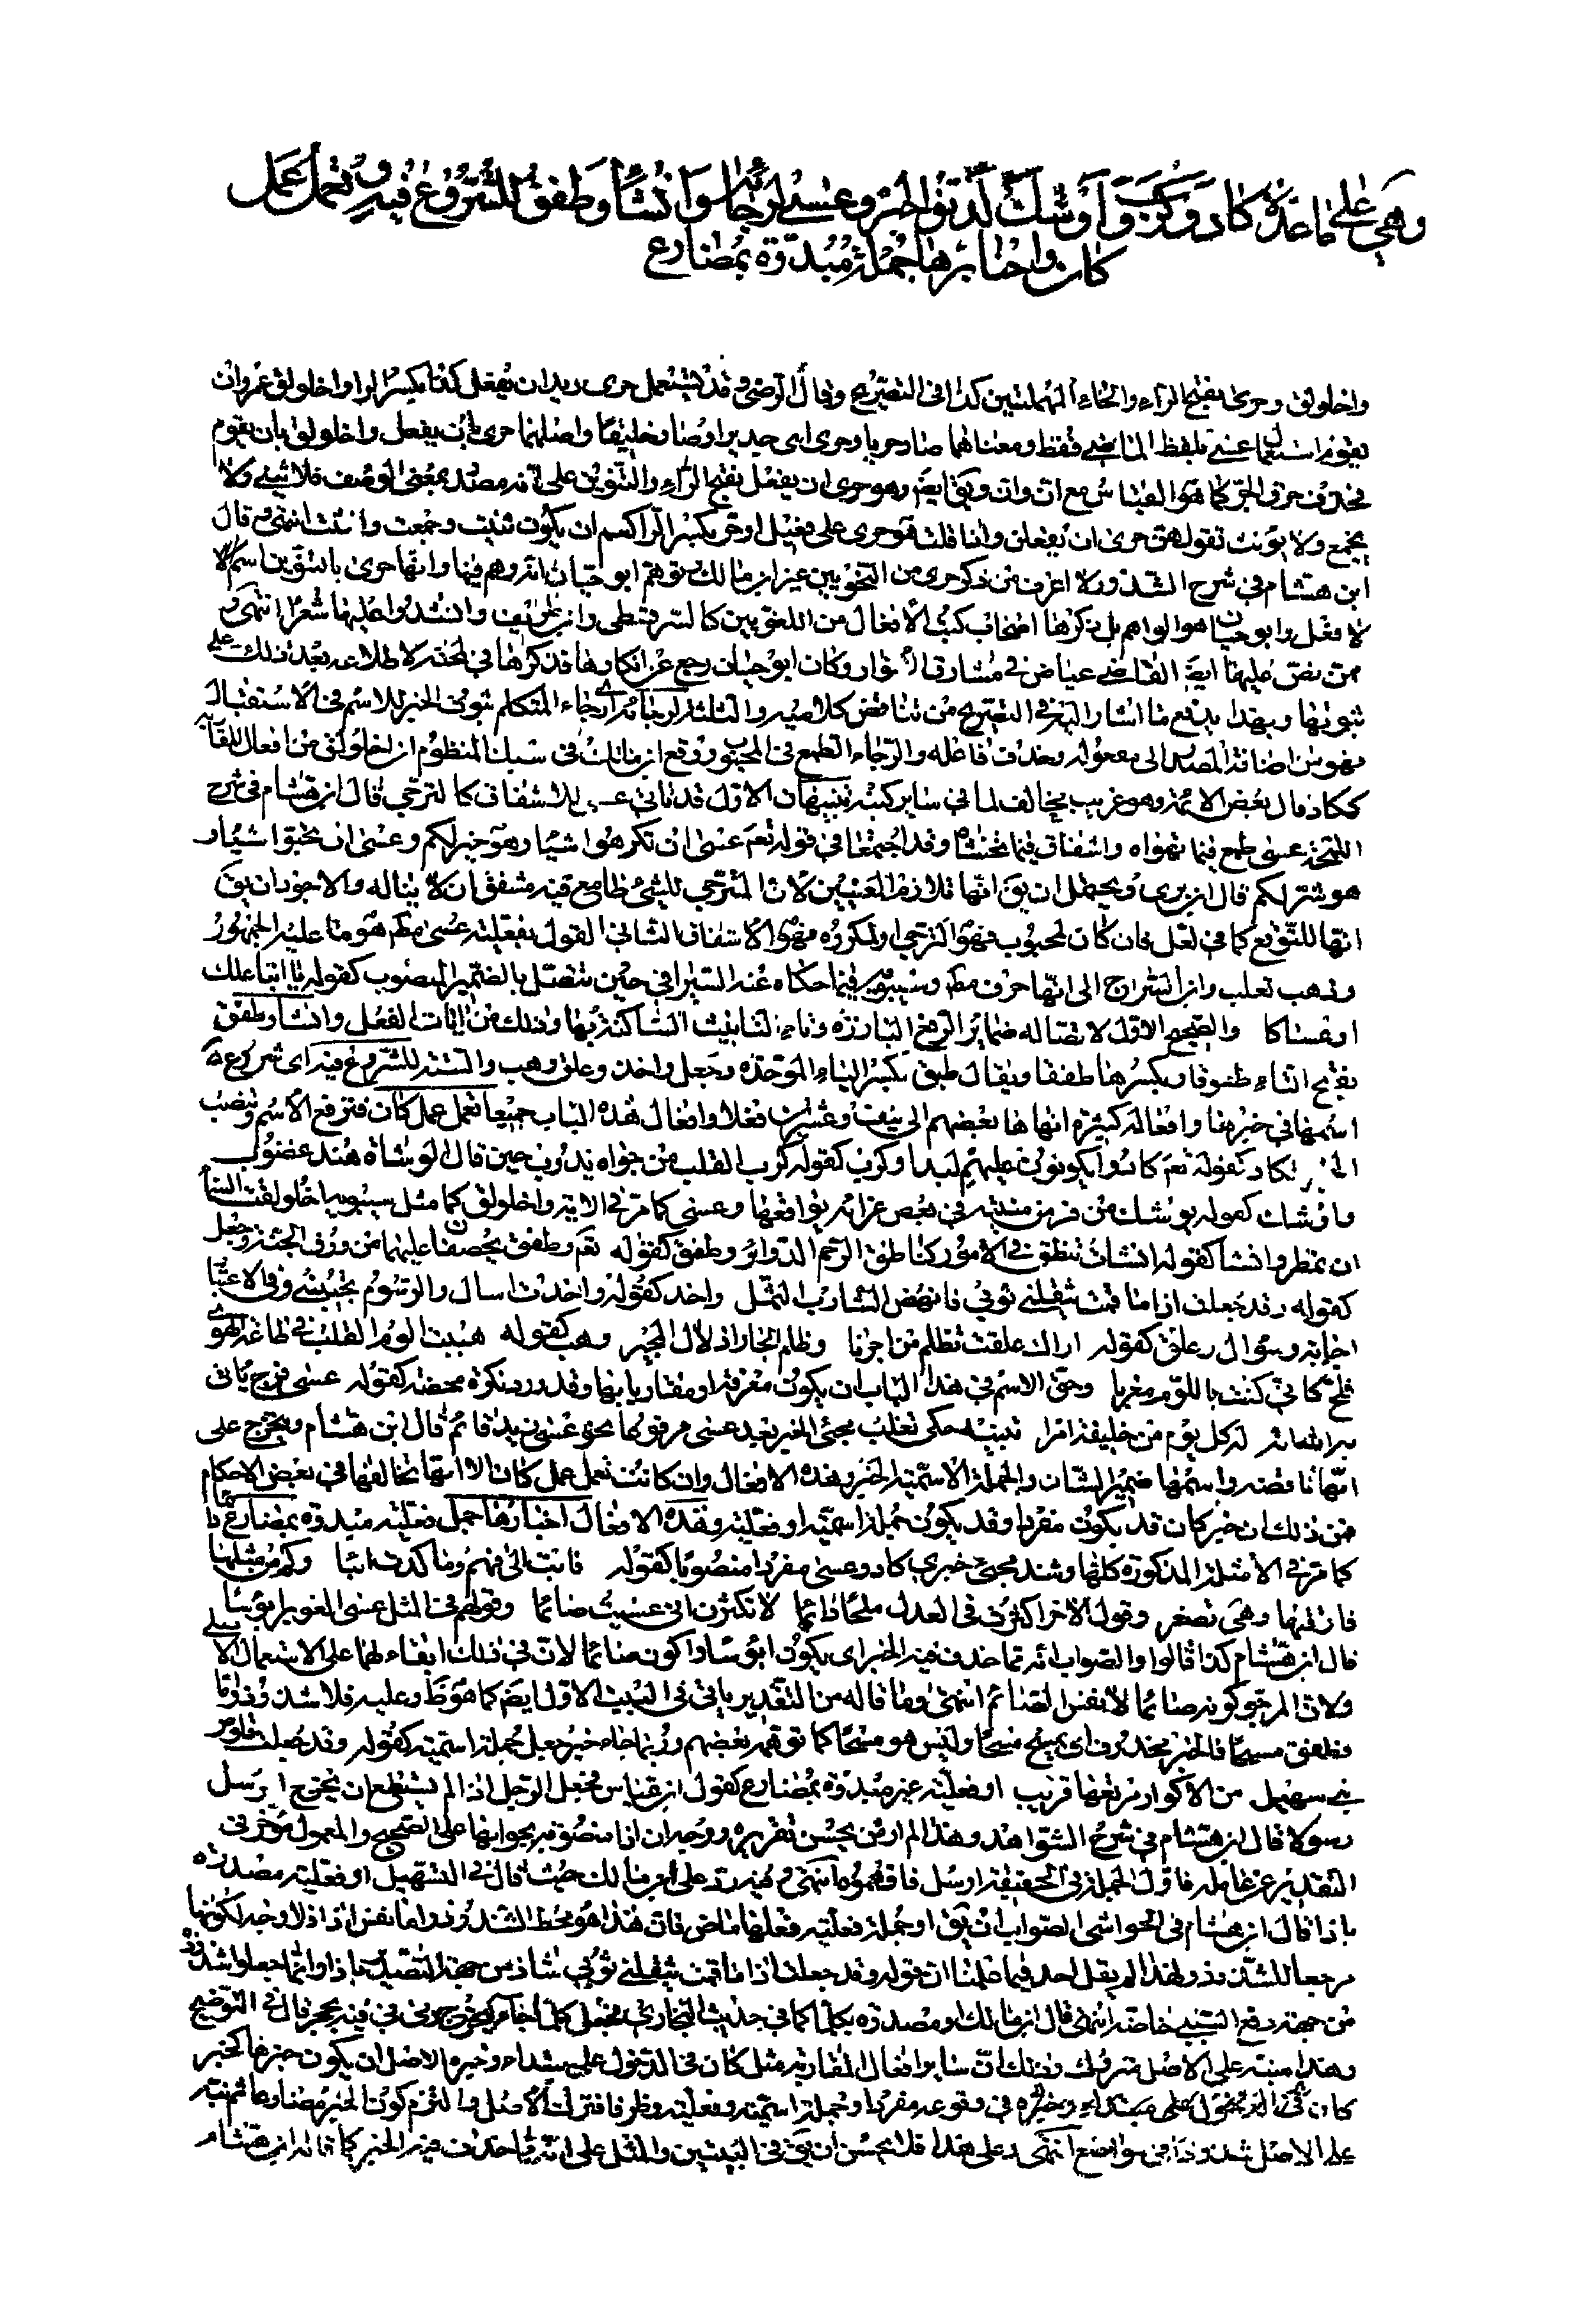 وهي على ما عنده كاد وكرب واوشك لدنو الخبر وعسى لرجائه وانشأ وطفق للشروع فيه وتعمل عمل
كان واخبارها جملة مبدوة بمضارع
واخلولق وحرى بفتح الراء والحاء المهملتين كذا في التصريح وقال الرضي وقد يستعمل حرى زيد ان يفعل كذا بكسر الراء واخلولق عمرو ان
يقوم استعمال عسى بلفظ الماضي فقط ومعناهما صار حريا وحرى اى جديرا وصار خليقا واصلهما حرى بان يفعل واخلولق بان يقوم
بحذف حرف الجر كما هو القياس مع ان وان ويق ايضا وهو حرى ان يفعل بفتح الراء والتنوين على انه مصدر بمعنى الوصف فلا يثنى ولا
يجمع ولا يؤنث تقول هن حرى ان يفعلن واذا قلت هو حرى على فعيل او حر بكسر الراء كعم ان يكون ثنيت وجمعت وانثت انتهى وقال
ابن هشام في شرح الشذور لا اعرف من ذكر حرى من النحويين غير ابن مالك وتوهم ابو حيان انه وهم فيها وانها حرى بالتنوين اسم لا
لا فعل وابو حيان هو الواهم بل ذكرها اصحاب كتب الافعال من اللغويين كالسرقسطي وابن طريف وانشدوا عليها شعرا انتهى و
ممن نص عليها ايضا القاضي عياض في مشارق الانوار وكان ابو حيان رجع عن انكارها فذكرها في لمحته لاطلاعه بعد ذلك على
ثبوتها وبهذا يدفع ما اشار اليه في التصريح من تناقض كلاميه والثلثة لرجائه اى رجاء المتكلم ثبوت الخبر للاسم في الاستقبال
فهو من اضافة المصدر الى مفعوله وحذف فاعله والرجاء الطمع في المحبوب ووقع لابن مالك في سبك المنظوم ان اخلولق من افعال المقاربة
ككاد قال بعض الائمة وهو غريب مخالف لما في ساير كتبه تنبيهان الاول قد تاتي عسى للاشفاق كالترجي قال ابن هشام في شرح
اللمحة عسى طمع فيما تهواه واشفاق فيما تخشاه وقد اجتمعا في قوله تعالى عسى ان تكرهوا شيئا وهو خير لكم وعسى ان تحبوا شيئا و
هو شر لكم قال ابن بري ويحتمل ان يق انها تلازم المعنيين لان المترجي للشئ طامع فيه مشفق ان لا يناله والاجود ان يق
انها للتوقع كما في لعل فان كان لمحبوب فهو الترجي او لمكروه فهو الاشفاق الثاني القول بفعلية عسى مطلقا هو ما عليه الجمهور
وذهب ثعلب وابن السراج الى انها حرف مطلقا وسيبويه فيما حكاه عنه السيرافي حين تتصل بالضمير المنصوب كقوله يا ابتا علك
او عساكا والصحيح الاول لاتصاله ضمائر الرفع البارزة وتاء التانيث الساكنة بها وذلك من ايات الفعل وانشأ وطفق
بفتح الفاء طفوقا وبكسرها طفقا ويقال طبق بكسر الباء الموحدة وجعل واخذ وعلق وهب والستة للشروع فيه اى شروع
اسمها في خبرها وافعاله كثيرة انهاها بعضهم الى نيف وعشرين فعلا وافعال هذه الباب جميعا تعمل عمل كان فترفع الاسم وتنصب
الخبر كاد كقوله تعالى كادوا يكونون عليه لبدا وكرب كقوله كرب القلب من جواه يذوب حين قال الوشاة هند غضوب
واوشك كقوله يوشك من فر من منيته في بعض غراته يوافقها وعسى كما مر في الآية واخلولق كما مثل سيبويه اخلولقت السماء
ان تمطر وانشأ كقوله انشات تنطق في الامور كناطق الرخم الدوائر وطفق كقوله تعالى وطفقا يخصفان عليهما من ورق الجنة وجعل
كقوله وقد جعلت اذا ما قمت يثقلني ثوبي فانهض الشارب الثمل واخذ كقوله واخذت اسال والرسوم تجيبني وفي الاعتبار
اجابة وسؤال وعلق كقوله اراك علقت تظلم من اجرنا وظلم الجار اذلال المجير وهب كقوله هببت الوم القلب في طاعة الهوى
فلج كاني كنت باللوم مغريا وحق الاسم في هذا الباب ان يكون معرفة او مقاربا بها وقد ورد نكرة محضة كقوله عسى فرج ياتي
به الله انه له كل يوم من خليقته امر تنبيه حكى ثعلب مجئ الخبر بعد عسى مرفوعا نحو عسى زيد قائم قال ابن هشام ويخرج على
انها ناقصة واسمها ضمير الشان والجملة الاسمية الخبر وهذه الافعال وان كانت تعمل عمل كان الا انها تخالفها في بعض الاحكام
فمن ذلك ان خبر كان قد يكون مفردا وقد يكون جملة اسمية او فعلية وهذه الافعال اخبارها جمل فعلية مبدوة بمضارع
كما مر في الامثلة المذكورة كلها وشذ مجئ خبري كاد وعسى مفردا منصوبا كقوله فابت الى فهم وما كدت ائبا وكم مثلها
فارقتها وهي تصفر وقول الآخر اكثرت في العذل ملحا دائما لا تكثرن اني عسيت صائما وقولهم في المثل عسى الغوير ابؤسا
قال ابن هشام كذا قالوا والصواب انه مما حذف فيه الخبر اى يكون ابؤسا واكون صائما لان في ذلك ابقاء لهما على الاستعمال الاصلي
ولان المرجو كونه صائما لا نفس الصائم انتهى وما قاله من التقدير ياتي في البيت الاول ايضا كما هو ظ وعليه فلا شذوذ واما
فطفق مسحا فالخبر محذوف اى يمسح مسحا وليس هو مسحا كما توهمه بعضهم وربما جاء خبر جعل جملة اسمية كقوله وقد جعلت قلوص
بني سهيل من الاكوار مرتعها قريب او فعلية غير مبدوة بمضارع كقول ابن عباس فجعل الرجل اذا لم يستطع ان يخرج ارسل
رسولا قال ابن هشام في شرح الشواهد وهذا لم ار من يحسن تقريره ووجهه ان اذا منصوبة بجوابها على الصحيح والمعمول مؤخر في
التقدير عن عامله فاول الجملة في الحقيقة ارسل فافهموه انتهى وفيه رد على ابن مالك حيث قال في التسهيل او فعلية مصدرة
باذا قال ابن هشام في الحواشي الصواب ان يق او جملة فعلية فعلها ماض فان هذا هو محط الشذوذ واما نفس اذا فلا وجه لكونها
مرجعا للشذوذ ولهذا لم يقل احد فيما علمنا ان قوله وقد جعلت اذا ما قمت يثقلني ثوبي شاذ من جهة التصدير باذا وانما جعلوا شذوذه
من جهة رفع السببي خاصة انتهى قال ابن مالك او مصدرة بكلما كما في حديث البخاري فجعل كلما جاء ليخرج رمى في فيه بحجر قال في التوضيح
وهذا منبه على الاصل متروك وذلك ان سائر افعال المقاربة مثل كان في الدخول على مبتداء وخبر فالاصل ان يكون خبرها كخبر
كان في الدخول على مبتداء وخبره في وقوعه مفردا وجملة اسمية وفعلية وظرفا فترك الاصل والتزم كون الخبر مضارعا ثم نبه
على الاصل شذوذا في مواضع انتهى وعلى هذا فلا يحسن ان يق في البيتين والمثل على انه مما حذف فيه الخبر كما قاله ابن هشام